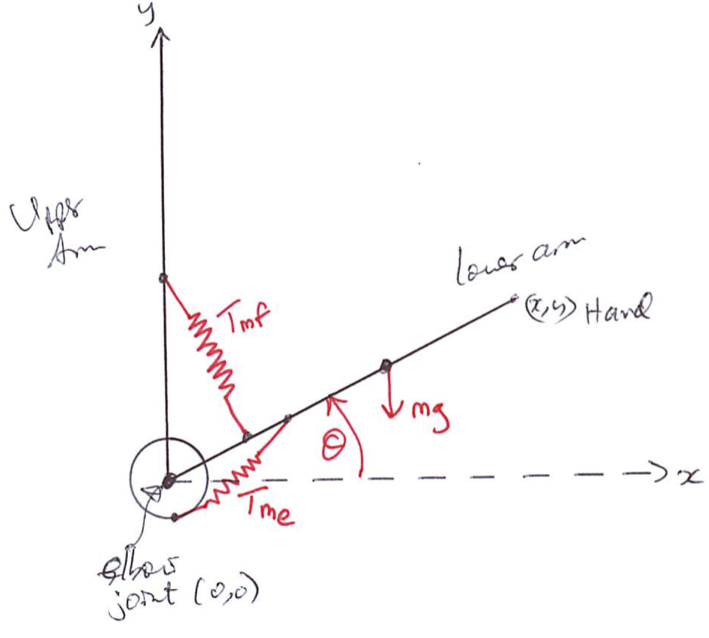 y
Upper
Arm
Lower arm
(x,y) Hand
Tmf
mg
θ
x
Tme
elbow
joint (0,0)